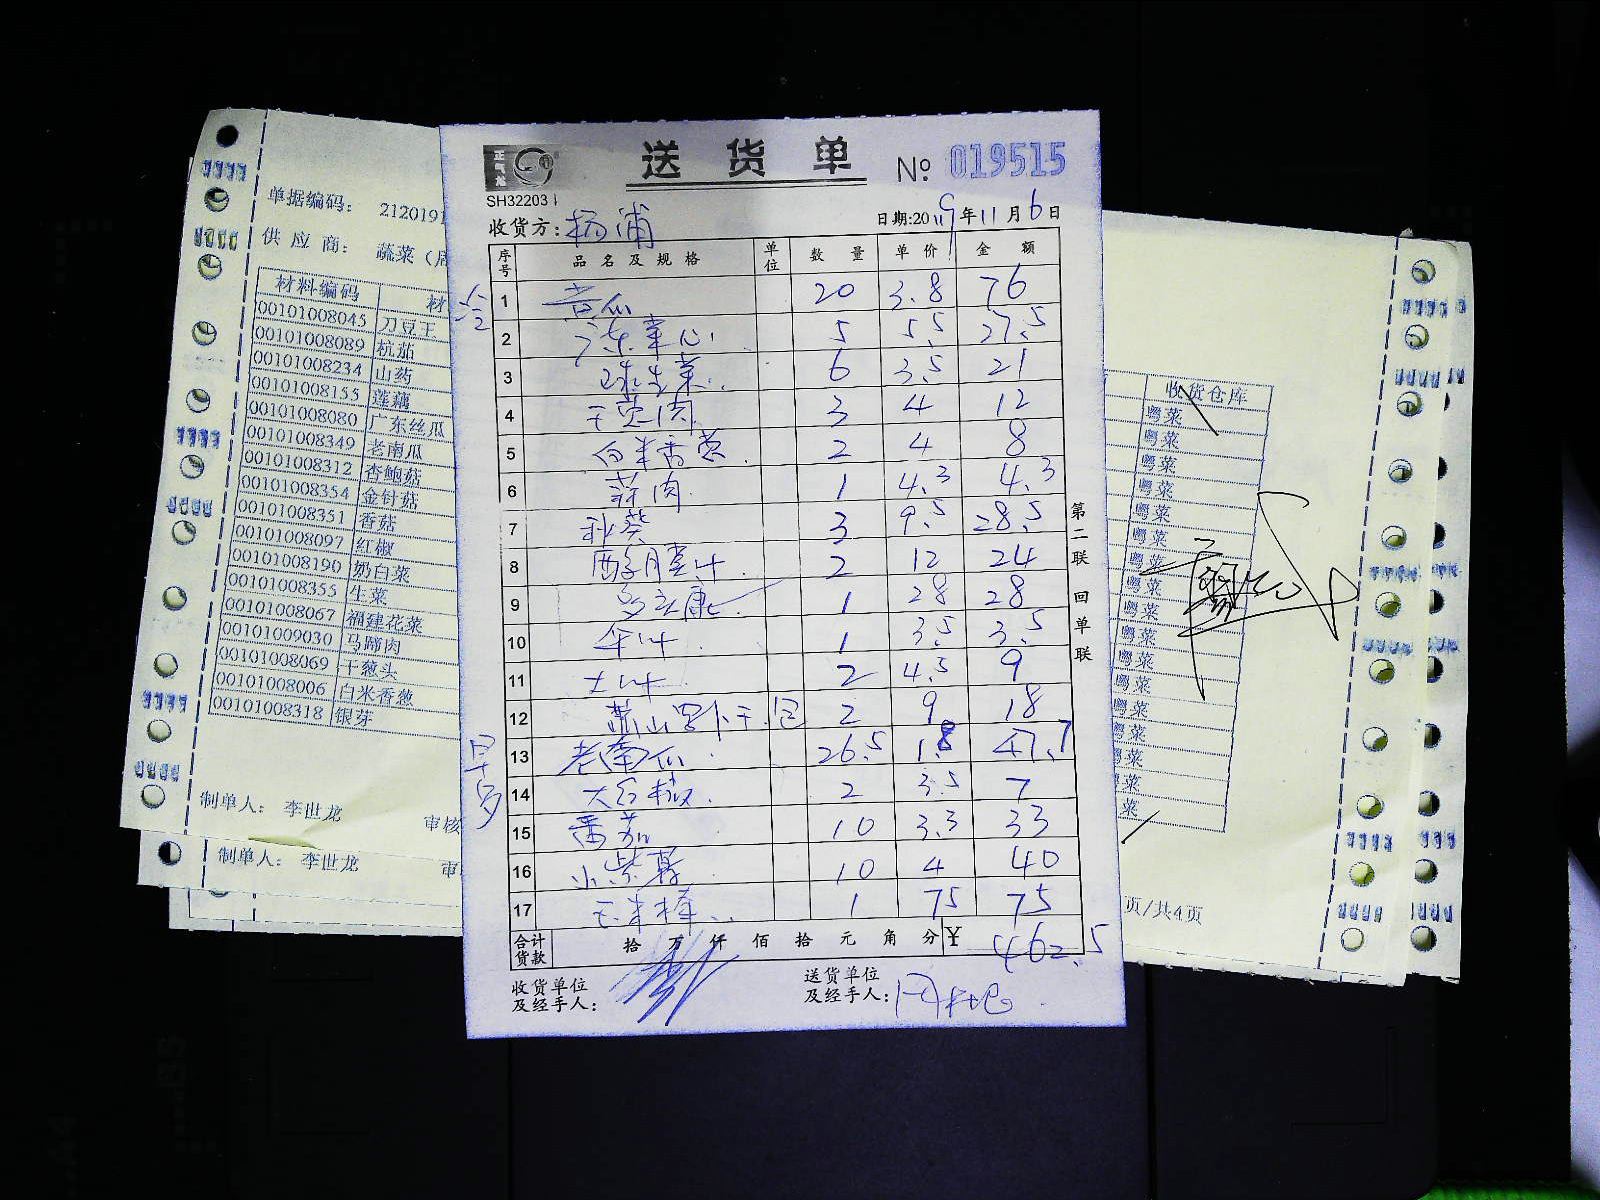 单据编码： 2120191
供 应 商： 蔬菜（
材料编码 材
00101008045 刀豆王
00101008089 杭茄
00101008234 山药
00101008155 莲藕
00101008080 广东丝瓜
00101008349 老南瓜
00101008312 杏鲍菇
00101008354 金针菇
00101008351 香菇
00101008097 红椒
00101008190 奶白菜
00101008355 生菜
00101008067 福建花菜
00101009030 马蹄肉
00101008069 干葱头
00101008006 白米香葱
00101008318 银芽
制单人： 李世龙 审核
制单人： 李世龙 审
正气龙
送货单 № 019515
SH322031
收货方：杨浦 日期:2019年11月6日
序号 品名及规格 单位 数量 单价 金额
1 黄瓜 20 3.8 76
2 广东菜心 5 5.5 27.5
3 球生菜 6 3.5 21
4 3 4 12
5 白米香葱 2 4 8
6 蒜肉 1 4.3 4.3
7 秋葵 3 9.5 28.5
8 2 12 24
9 1 28 28
10 1 3.5 3.5
11 大叶 2 4.5 9
12 萧山罗卜干 包 2 9 18
早
13 老南瓜 26.5 1.8 47.7
14 2 3.5 7
15 番茄 10 3.3 33
16 小紫薯 10 4 40
17 玉米棒 1 75 75
合计货款 拾 万 仟 佰 拾 元 角 分 ¥ 462.5
收货单位及经手人：
送货单位及经手人：
第二联 回单联
收货仓库
粤菜
粤菜
粤菜
粤菜
粤菜
粤菜
粤菜
粤菜
粤菜
粤菜
粤菜
粤菜
粤菜
粤菜
粤菜
粤菜
菜
页/共4页